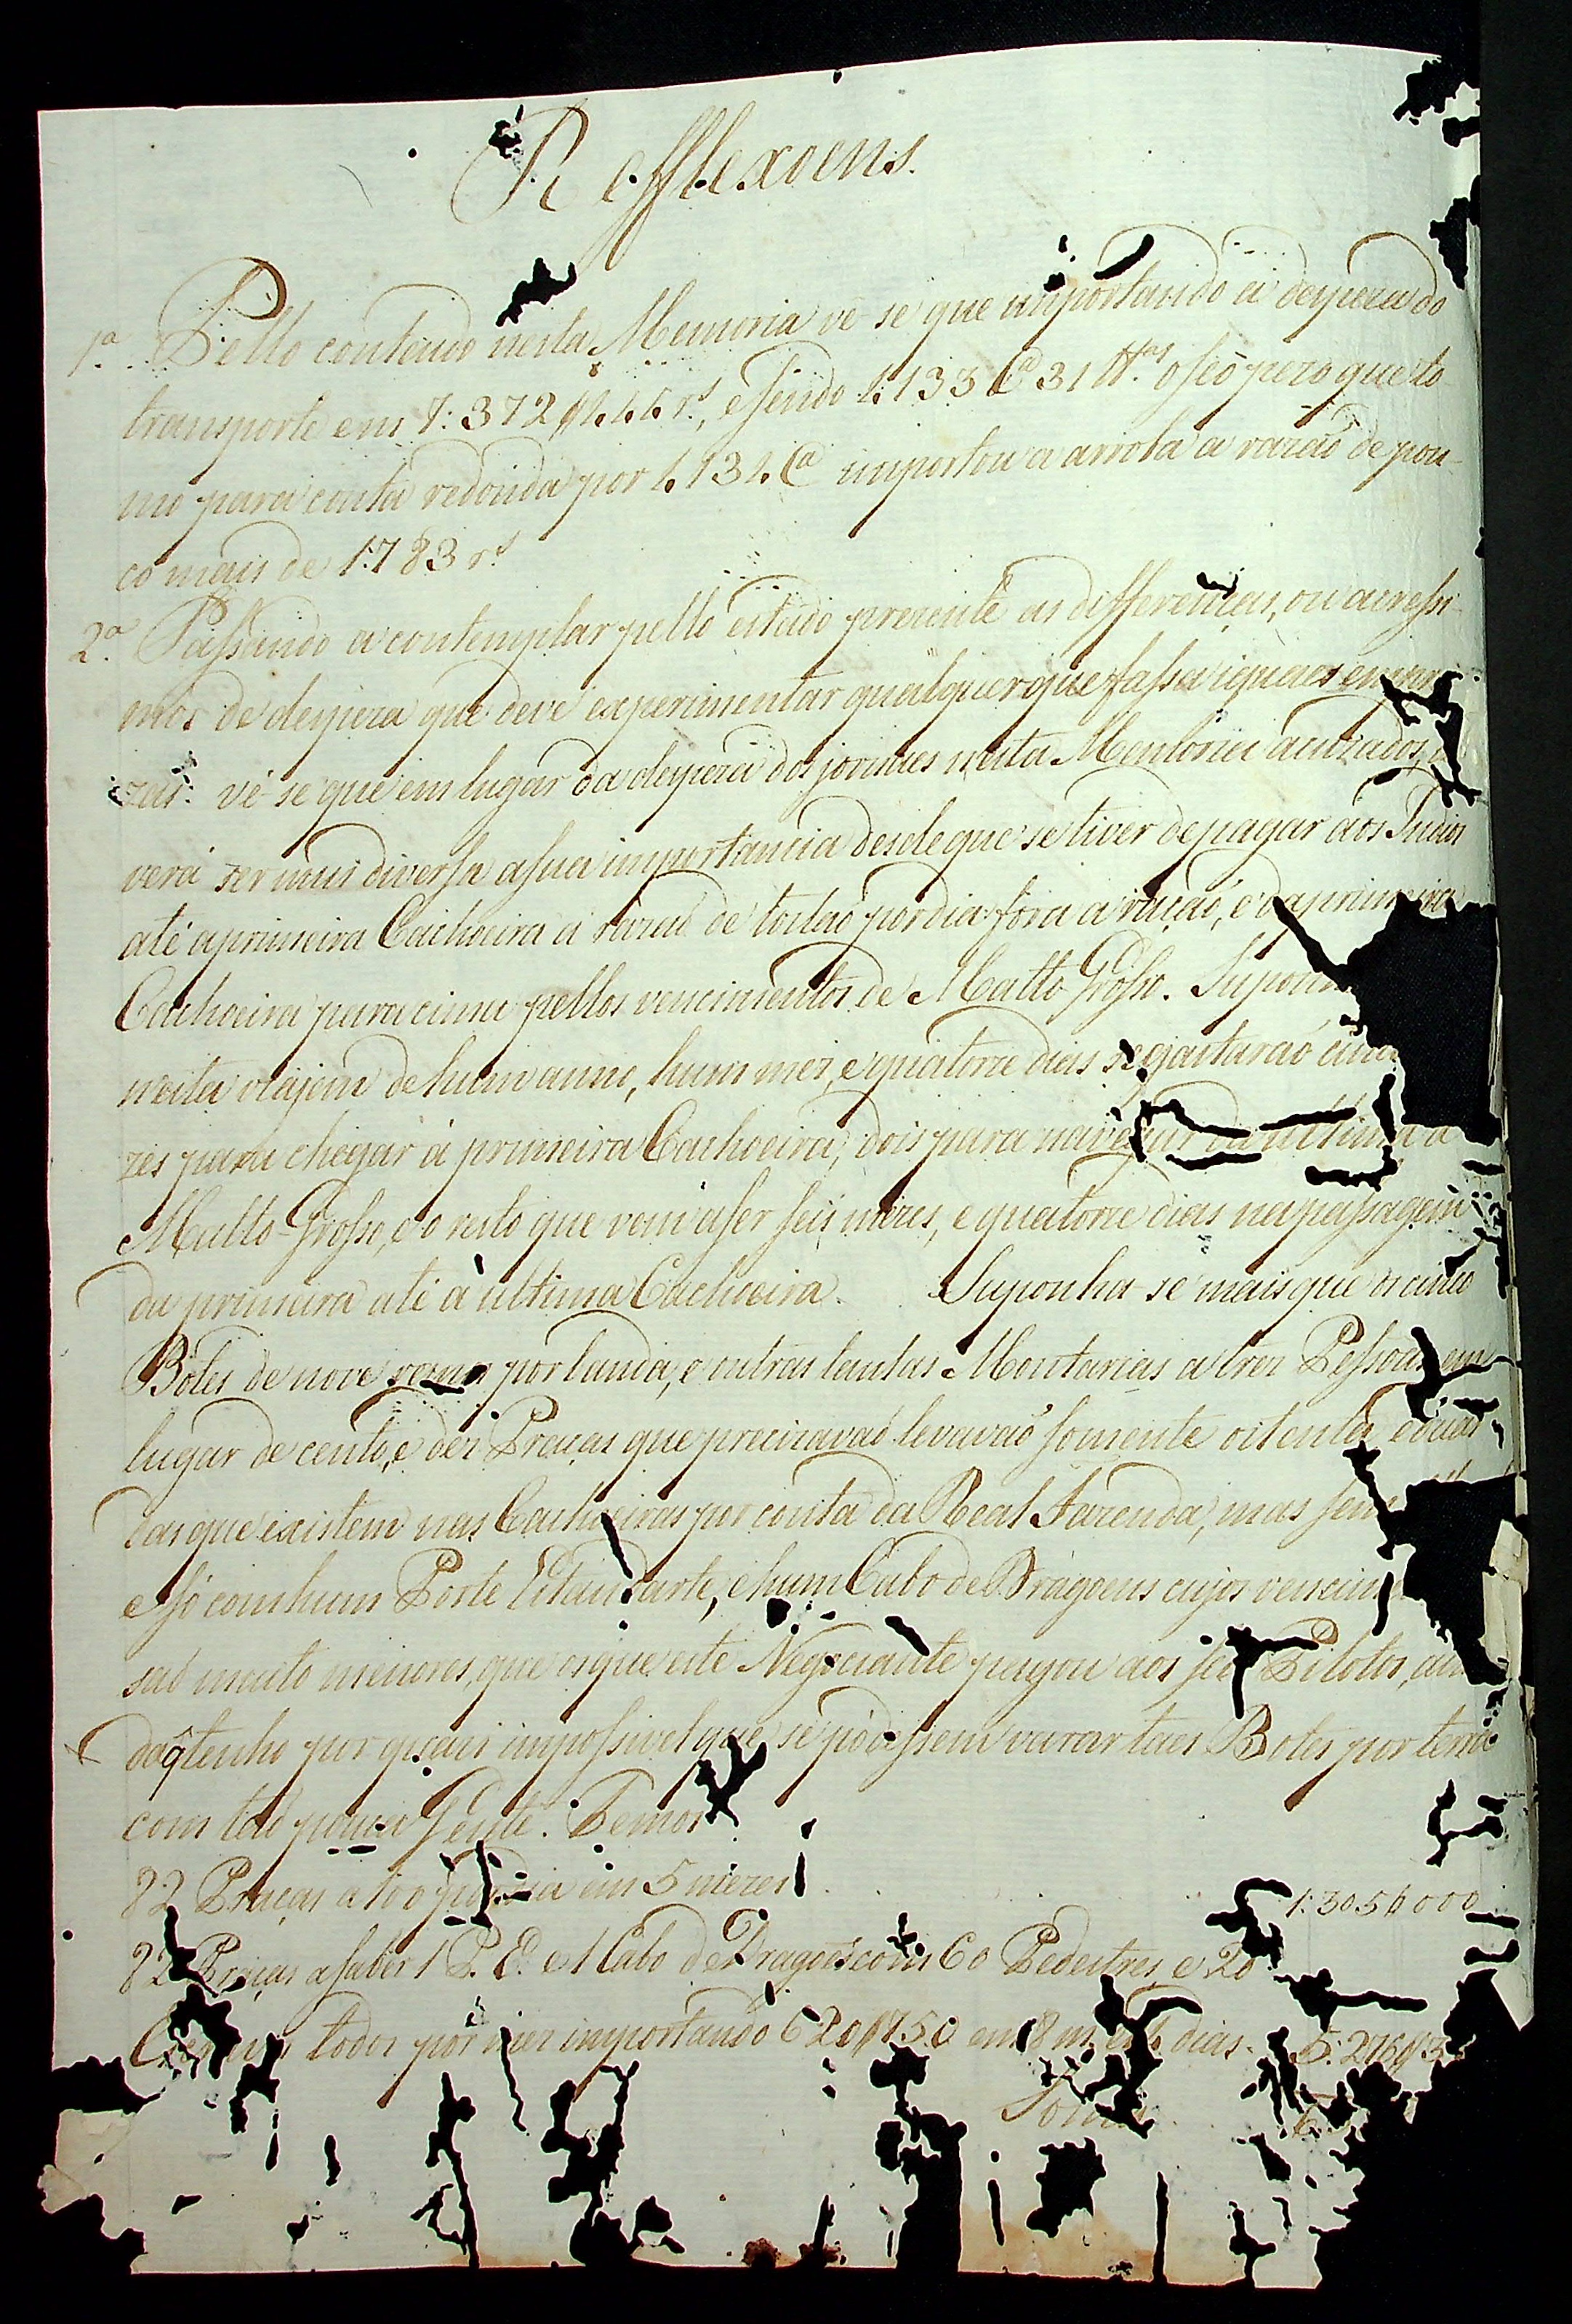 Refflexoens.
1.ª Pello contendo nesta Memoria vê se que importando a despeza do
transporte em 7:372$444 r.s, e sendo 4133 @ 31 tt.as o seô pezo que to-
mo para conta redonda por 4134 @ importou a arroba a razaõ de pou-
co mais de 1783 r.s
2.ª Passando a contemplar pello estado prezente as differenças, ou acressi-
mos de despeza que deve experimentar qualquer que fassa iguaes
zas: vê se que em lugar da despeza dos jornaes nesta Memoria
verá ser mui diversa a sua importancia desde que se tiver de pagar aos Indios
até a primeira Cachoeira a razaõ de tostaõ por dia fóra a raçaõ, e da primeira
Cachoeira para cima pellos vencimentos de Matto Grosso.
nesta viajem de hum anno, hum mez, e quatorze dias se gastaraõ
zes para chegar á primeira Cachoeira, dois para navegar da ultima a
Matto-Grosso, e o resto que vem a ser seis mezes, e quatorze dias na passagem
da primeira até á ultima Cachoeira. Suponha se mais que os cinco
Botes de nove remos por banda, e outras tantas Montarias a trez Pessoas em
lugar de cento, e dez Praças que precizavaõ levavaõ somente oitenta, e duas
das que existem nas Cachoeiras por conta da Real Fazenda, mas
e só com hum Porte Estandarte, e hum Cabo de Dragoens cujos
saõ muito menores, que os que este Negociante pagou aos Pilotos,
do q̃ tenho por quazi impossivel que se podessem varar taes Botes por terra
com taõ pouca Gente. Temos
82 Praças a 100 por dia em 5 mezes 1:305$000
82 Praças a saber 1 P. E. e 1 Cabo de Dragoẽs com 60 Pedestres, e 20
todos por mez importando 620$750 em 8 m. dias. 5:276$3
Soma